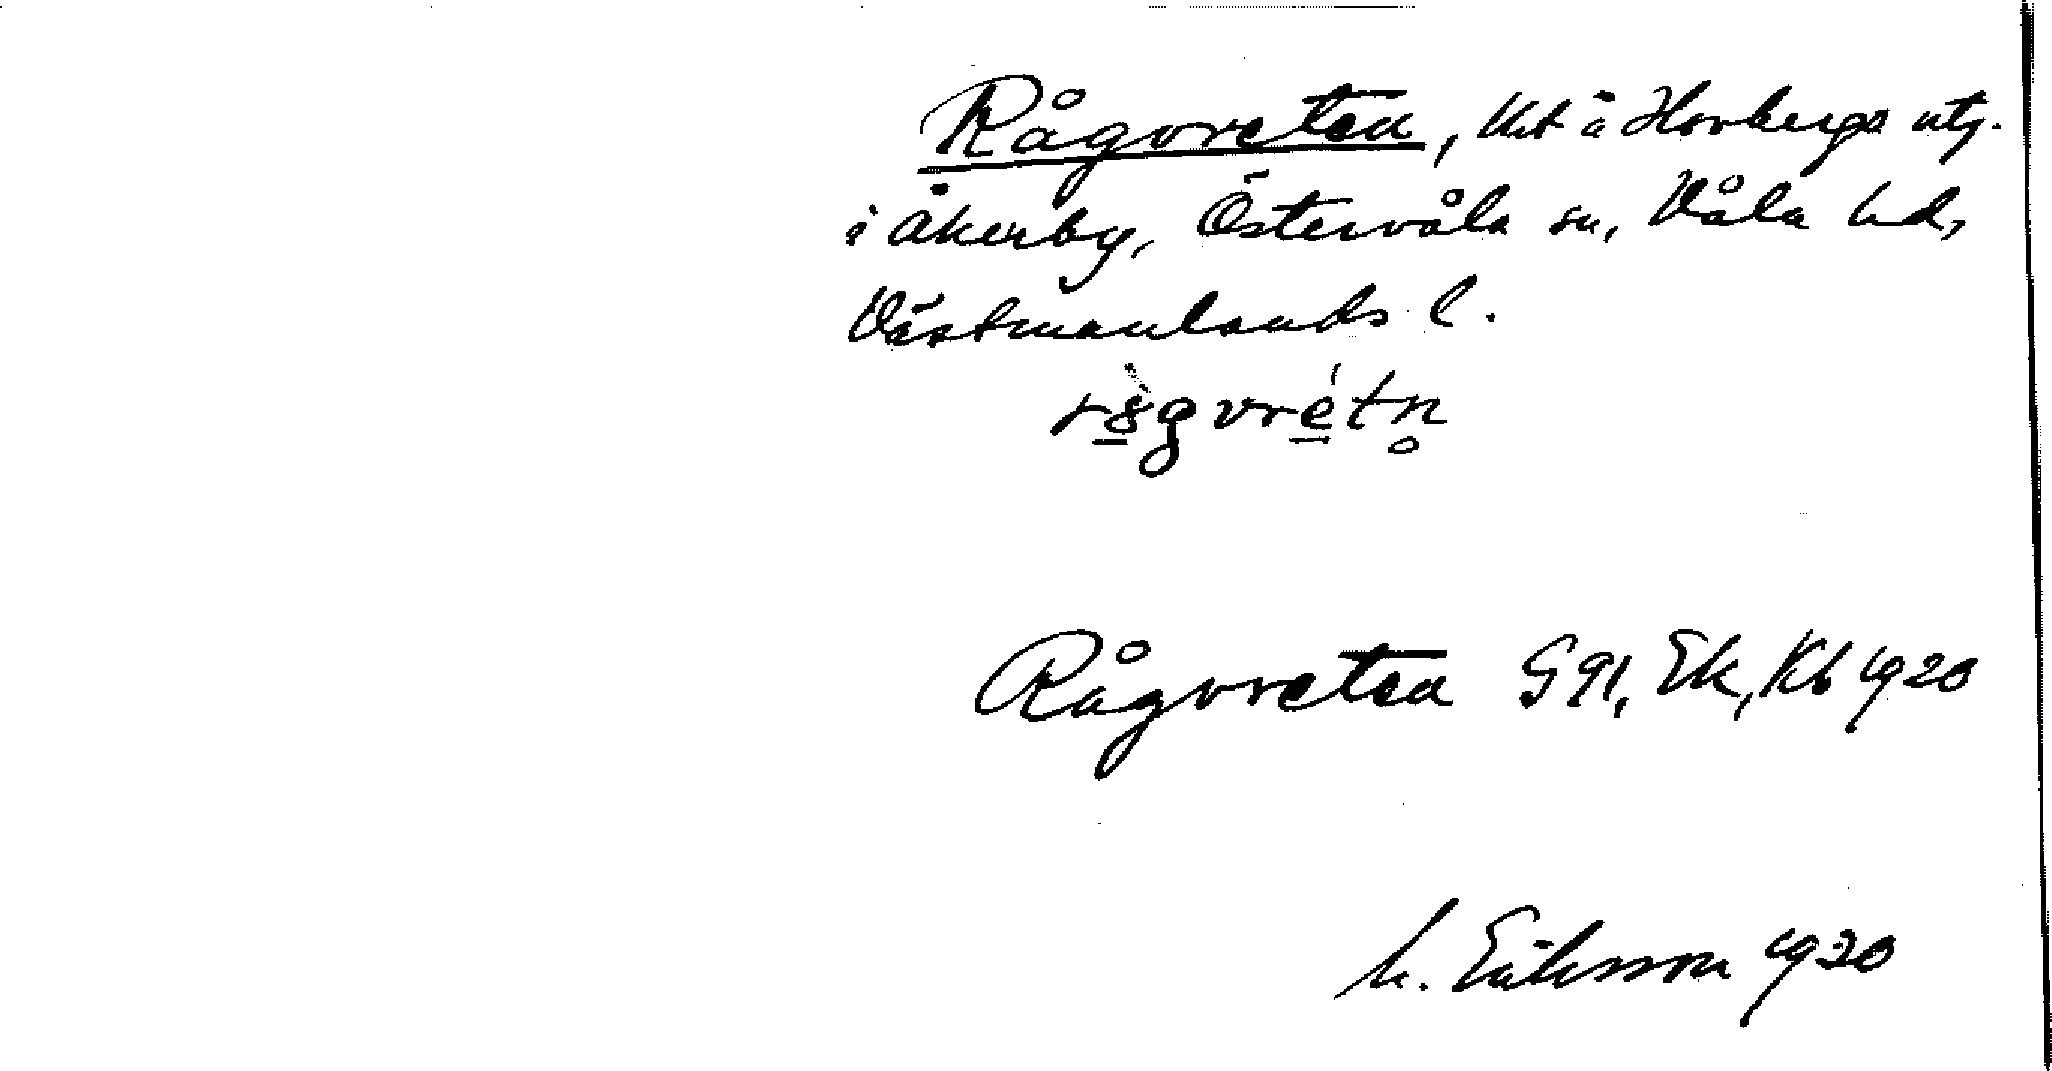 Rågvreten, Urt å Horbergs utg.
i Åkerby, Östervåla sn, Våla hd,
Västmanlands l.
Rågvreten G 91, Ek, Kb 1920
M. Eriksson 1920